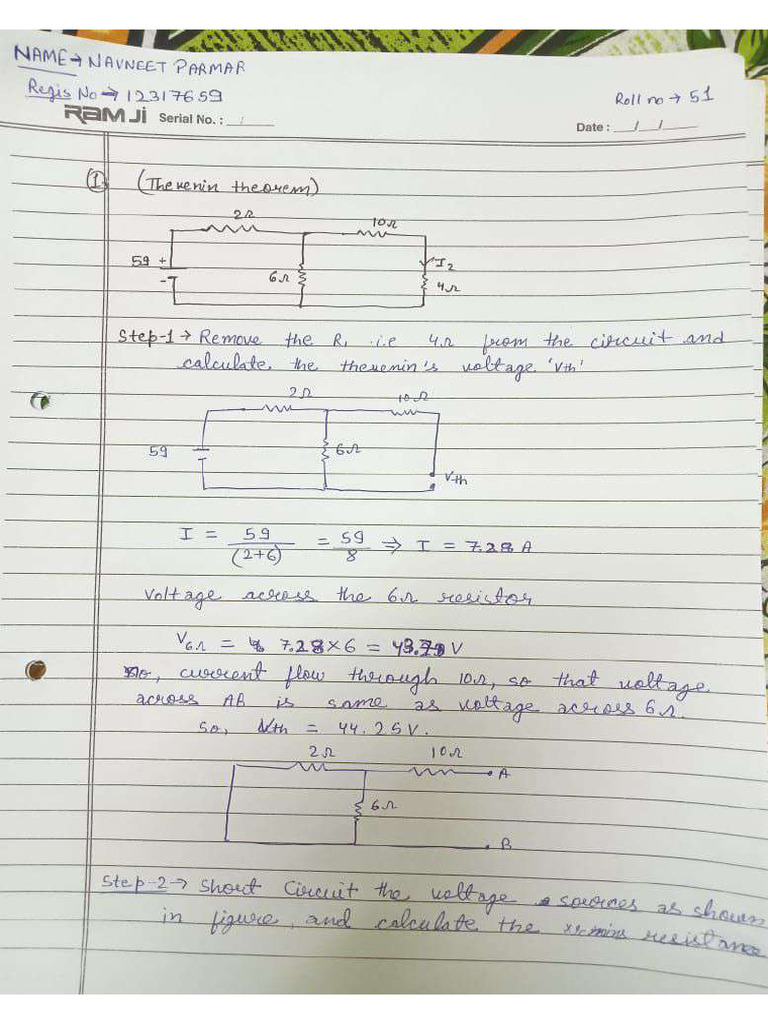 NAME → NAVNEET PARMAR
Regis No → 12317659
Roll no → 51
RAMJI Serial No. : /
Date : / /
① (Thevenin theorem)
2Ω 10Ω
59 + - 6Ω I₂ 4Ω
Step-1 → Remove the R, i.e 4Ω from the circuit and
calculate, the thevenin's voltage 'Vth'
2Ω 10Ω
59 6Ω
Vth
I = 59/(2+6) = 59/8 ⇒ I = 7.28 A
Voltage across the 6Ω resistor
V6Ω = 7.28×6 = V
No, current flow through 10Ω, so that voltage
across AB is same as voltage across 6Ω.
so, Vth = 44.25V.
2Ω 10Ω
A
6Ω
B
Step-2 → Short Circuit the voltage sources as shown
in figure, and calculate the resistance